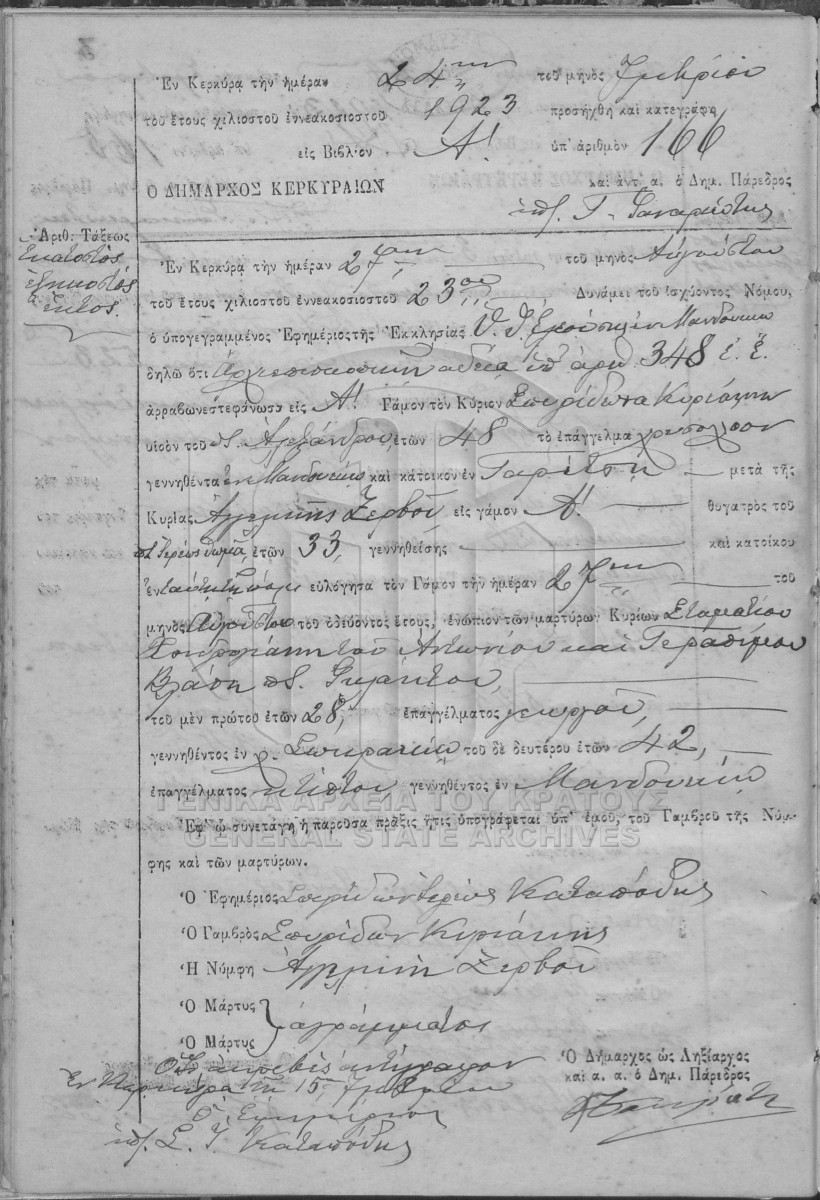 Ἐν Κερκύρᾳ τὴν ἡμέραν 24ην τοῦ μηνὸς 7μβρίου
τοῦ ἔτους χιλιοστοῦ ἐννεακοσιοστοῦ 1923 προσήχθη καὶ κατεγράφη
εἰς Βιβλίον Α! ὑπ' ἀριθμὸν 166
Ο ΔΗΜΑΡΧΟΣ ΚΕΡΚΥΡΑΙΩΝ
καὶ ἀντ. α. ὁ Δημ. Πάρεδρος
ὑπ. Γ.
Ἀριθ: Τάξεως
Ἑκατοστὸς
ἑξηκοστὸς
ἕκτος.
Ἐν Κερκύρᾳ τὴν ἡμέραν 27ην τοῦ μηνὸς Αὐγούστου
τοῦ ἔτους χιλιοστοῦ ἐννεακοσιοστοῦ 23ου Δυνάμει τοῦ ἰσχύοντος Νόμου,
ὁ ὑπογεγραμμένος Ἐφημέριος τῆς Ἐκκλησίας ἐν Μανδουκίῳ
δηλῶ ὅτι ἀδείᾳ ὑπ' ἀριθ. 348 ἐ. ἔ.
ἀρραβωνεστεφάνωσα εἰς Α! Γάμον τὸν Κύριον Σπυρίδωνα Κυριάκην
υἱὸν τοῦ π. Ἀλεξάνδρου, ἐτῶν 48 τὸ ἐπάγγελμα χρυσοχόον
γεννηθέντα ἐν Μανδουκίῳ καὶ κάτοικον ἐν Γαρίτσῃ μετὰ τῆς
Κυρίας Ἀγγελικῆς Ζερβοῦ εἰς γάμον Α! θυγατρὸς τοῦ
π. Ἱερέως Θωμᾶ, ἐτῶν 33, γεννηθείσης καὶ κατοίκου
ἐνταύθα εὐλόγησα τὸν Γάμον τὴν ἡμέραν 27ην τοῦ
μηνὸς Αὐγούστου τοῦ ὁδεύοντος ἔτους, ἐνώπιον τῶν μαρτύρων Κυρίων Σταματίου
τοῦ Ἀντωνίου καὶ Γερασίμου
Βλάση π.
τοῦ μὲν πρώτου ἐτῶν 28, ἐπαγγέλματος γεωργοῦ,
γεννηθέντος ἐν χ. τοῦ δὲ δευτέρου ἐτῶν 42,
ἐπαγγέλματος κτίστου, γεννηθέντος ἐν Μανδουκίῳ
ΓΕΝΙΚΑ ΑΡΧΕΙΑ ΤΟΥ ΚΡΑΤΟΥΣ
GENERAL STATE ARCHIVES
Ἐφ' ᾧ συνετάγη ἡ παροῦσα πρᾶξις ἥτις ὑπογράφεται ὑπ' ἐμοῦ, τοῦ Γαμβροῦ τῆς Νύμ-
φης καὶ τῶν μαρτύρων.
Ὁ Ἐφημέριος Σπυρίδων ἱερεὺς Καταπόδης
Ὁ Γαμβρὸς Σπυρίδων Κυριάκης
Ἡ Νύμφη Ἀγγελικὴ Ζερβοῦ
Ὁ Μάρτυς
Ὁ Μάρτυς } ἀγράμματοι
Ὅτι ἀκριβὲς ἀντίγραφον
Ἐν Κερκύρᾳ τῇ 15 7μβρίου
Ὁ Ἐφημέριος
ὑπ. Σ. Ἱ. Καταπόδης
Ὁ Δήμαρχος ὡς Ληξίαρχος
καὶ α. α. ὁ Δημ. Πάρεδρος